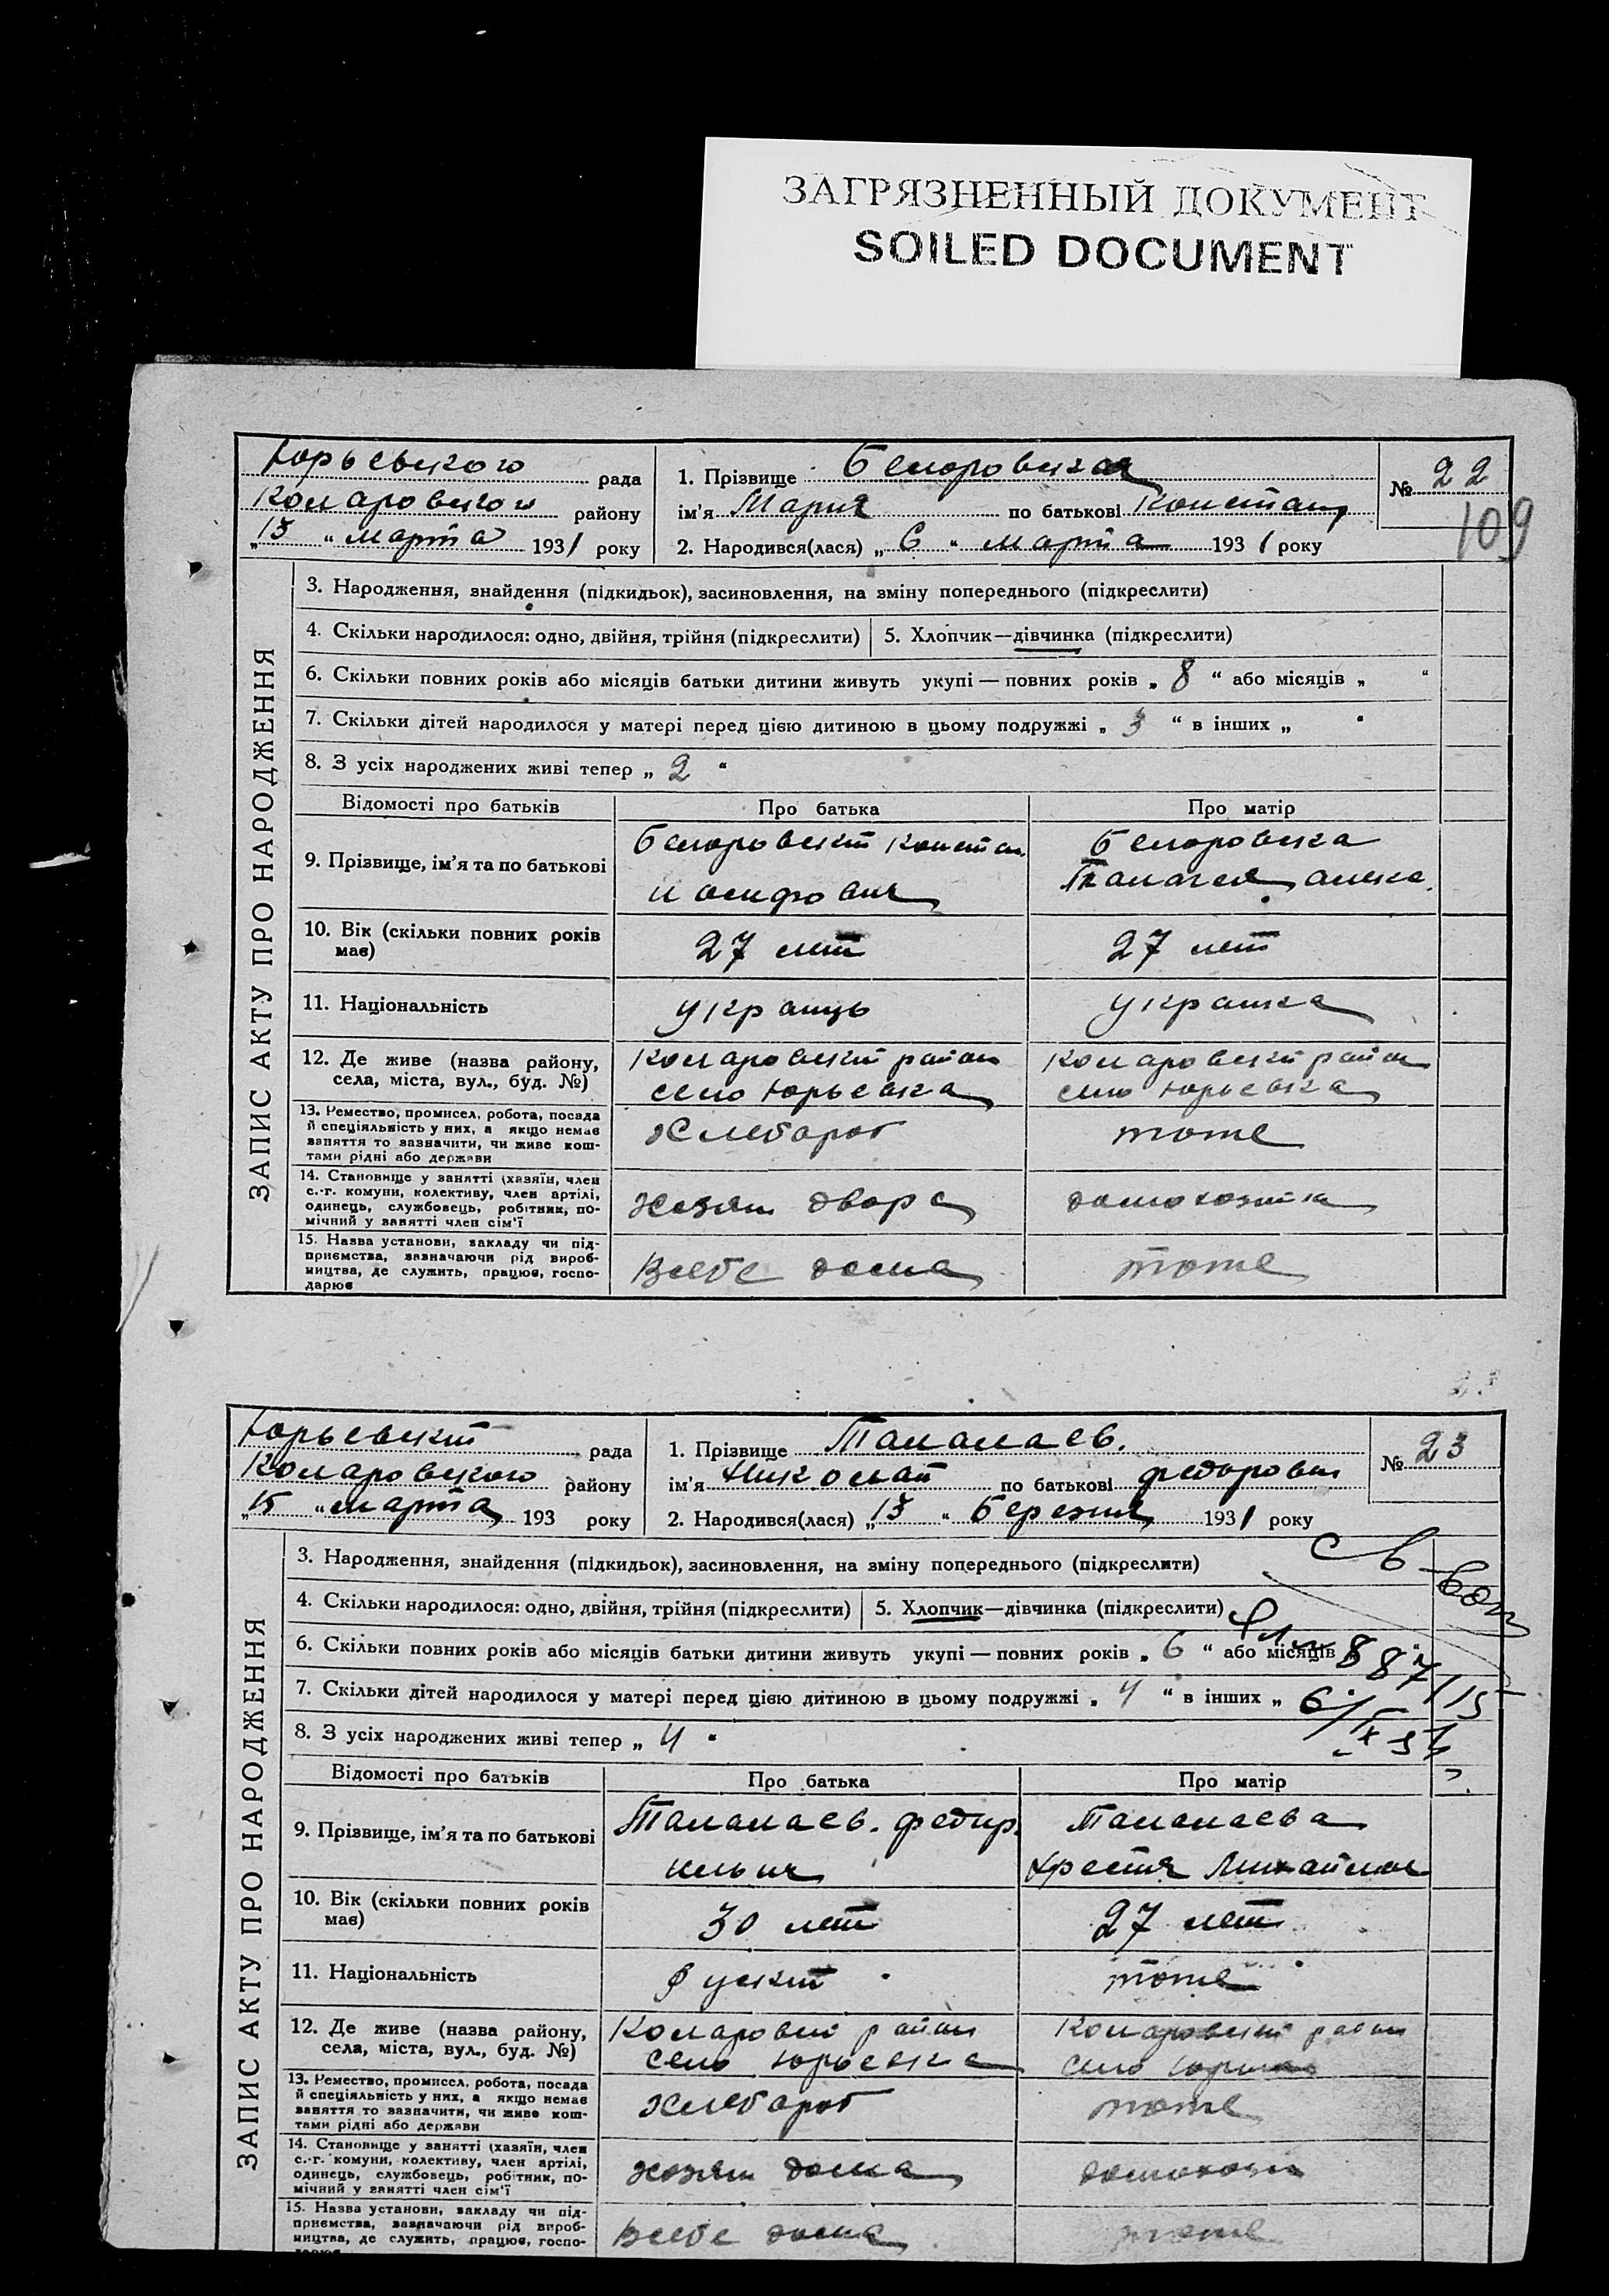 ЗАГРЯЗНЕННЫЙ ДОКУМЕНТ
SOILED DOCUMENT
Юрьевского рада
Комаровского району
„13 “ марта 1931 року
1. Прізвище
ім'я Мария по батькові Констан
2. Народився(лася) „ 6 “ марта 1931 року
№ 22
109
ЗАПИС АКТУ ПРО НАРОДЖЕННЯ
3. Народження, знайдення (підкидьок), засиновлення, на зміну попереднього (підкреслити)
4. Скільки народилося: одно, двійня, трійня (підкреслити)
5. Хлопчик—дівчинка (підкреслити)
6. Скільки повних років або місяців батьки дитини живуть укупі — повних років „ 8 “ або місяців „ “
7. Скільки дітей народилося у матері перед цією дитиною в цьому подружжі „ 3 “ в інших „ “
8. З усіх народжених живі тепер „ 2 “
Відомості про батьків
Про батька
Про матір
9. Прізвище, ім'я та по батькові
10. Вік (скільки повних років має)
27 лет
27 лет
11. Національність
украинка
12. Де живе (назва району,
села, міста, вул., буд. №)
Комаровский район
село Юрьевка
Комаровский район
село Юрьевка
13. Ремество, промисел, робота, посада
й спеціяльність у них, а якщо немає
заняття то зазначити, чи живе кош-
тами рідні або держави
Хлебороб
тоже
14. Становище у занятті (хазяїн, член
с.-г. комуни, колективу, член артілі,
одинець, службовець, робітник, по-
мічний у занятті член сім'ї
хозяин двора
домохозяйка
15. Назва установи, закладу чи під-
приємства, зазначаючи рід вироб-
ництва, де служить, працює, госпо-
дарює
Всебе дома
тоже
Юрьевский рада
Комаровского району
„15 “ марта 193 року
1. Прізвище Таланаев.
ім'я Николай по батькові Федорович
2. Народився(лася) „13 “ Березня 1931 року
№ 23
ЗАПИС АКТУ ПРО НАРОДЖЕННЯ
3. Народження, знайдення (підкидьок), засиновлення, на зміну попереднього (підкреслити)
4. Скільки народилося: одно, двійня, трійня (підкреслити)
5. Хлопчик—дівчинка (підкреслити)
6. Скільки повних років або місяців батьки дитини живуть укупі — повних років „ 6 “ або місяців
7. Скільки дітей народилося у матері перед цією дитиною в цьому подружжі „ 4 “ в інших „
8. З усіх народжених живі тепер „ 4 “
Відомості про батьків
Про батька
Про матір
9. Прізвище, ім'я та по батькові
10. Вік (скільки повних років має)
30 лет
27 лет
11. Національність
руский
тоже
12. Де живе (назва району,
села, міста, вул., буд. №)
район
село Юрьевка
Комаровский район
село
13. Ремество, промисел, робота, посада
й спеціяльність у них, а якщо немає
заняття то зазначити, чи живе кош-
тами рідні або держави
Хлебороб
тоже
14. Становище у занятті (хазяїн, член
с.-г. комуни, колективу, член артілі,
одинець, службовець, робітник, по-
мічний у занятті член сім'ї
хозяин дома
15. Назва установи, закладу чи під-
приємства, зазначаючи рід вироб-
ництва, де служить, працює, госпо-
Всебе дома
тоже